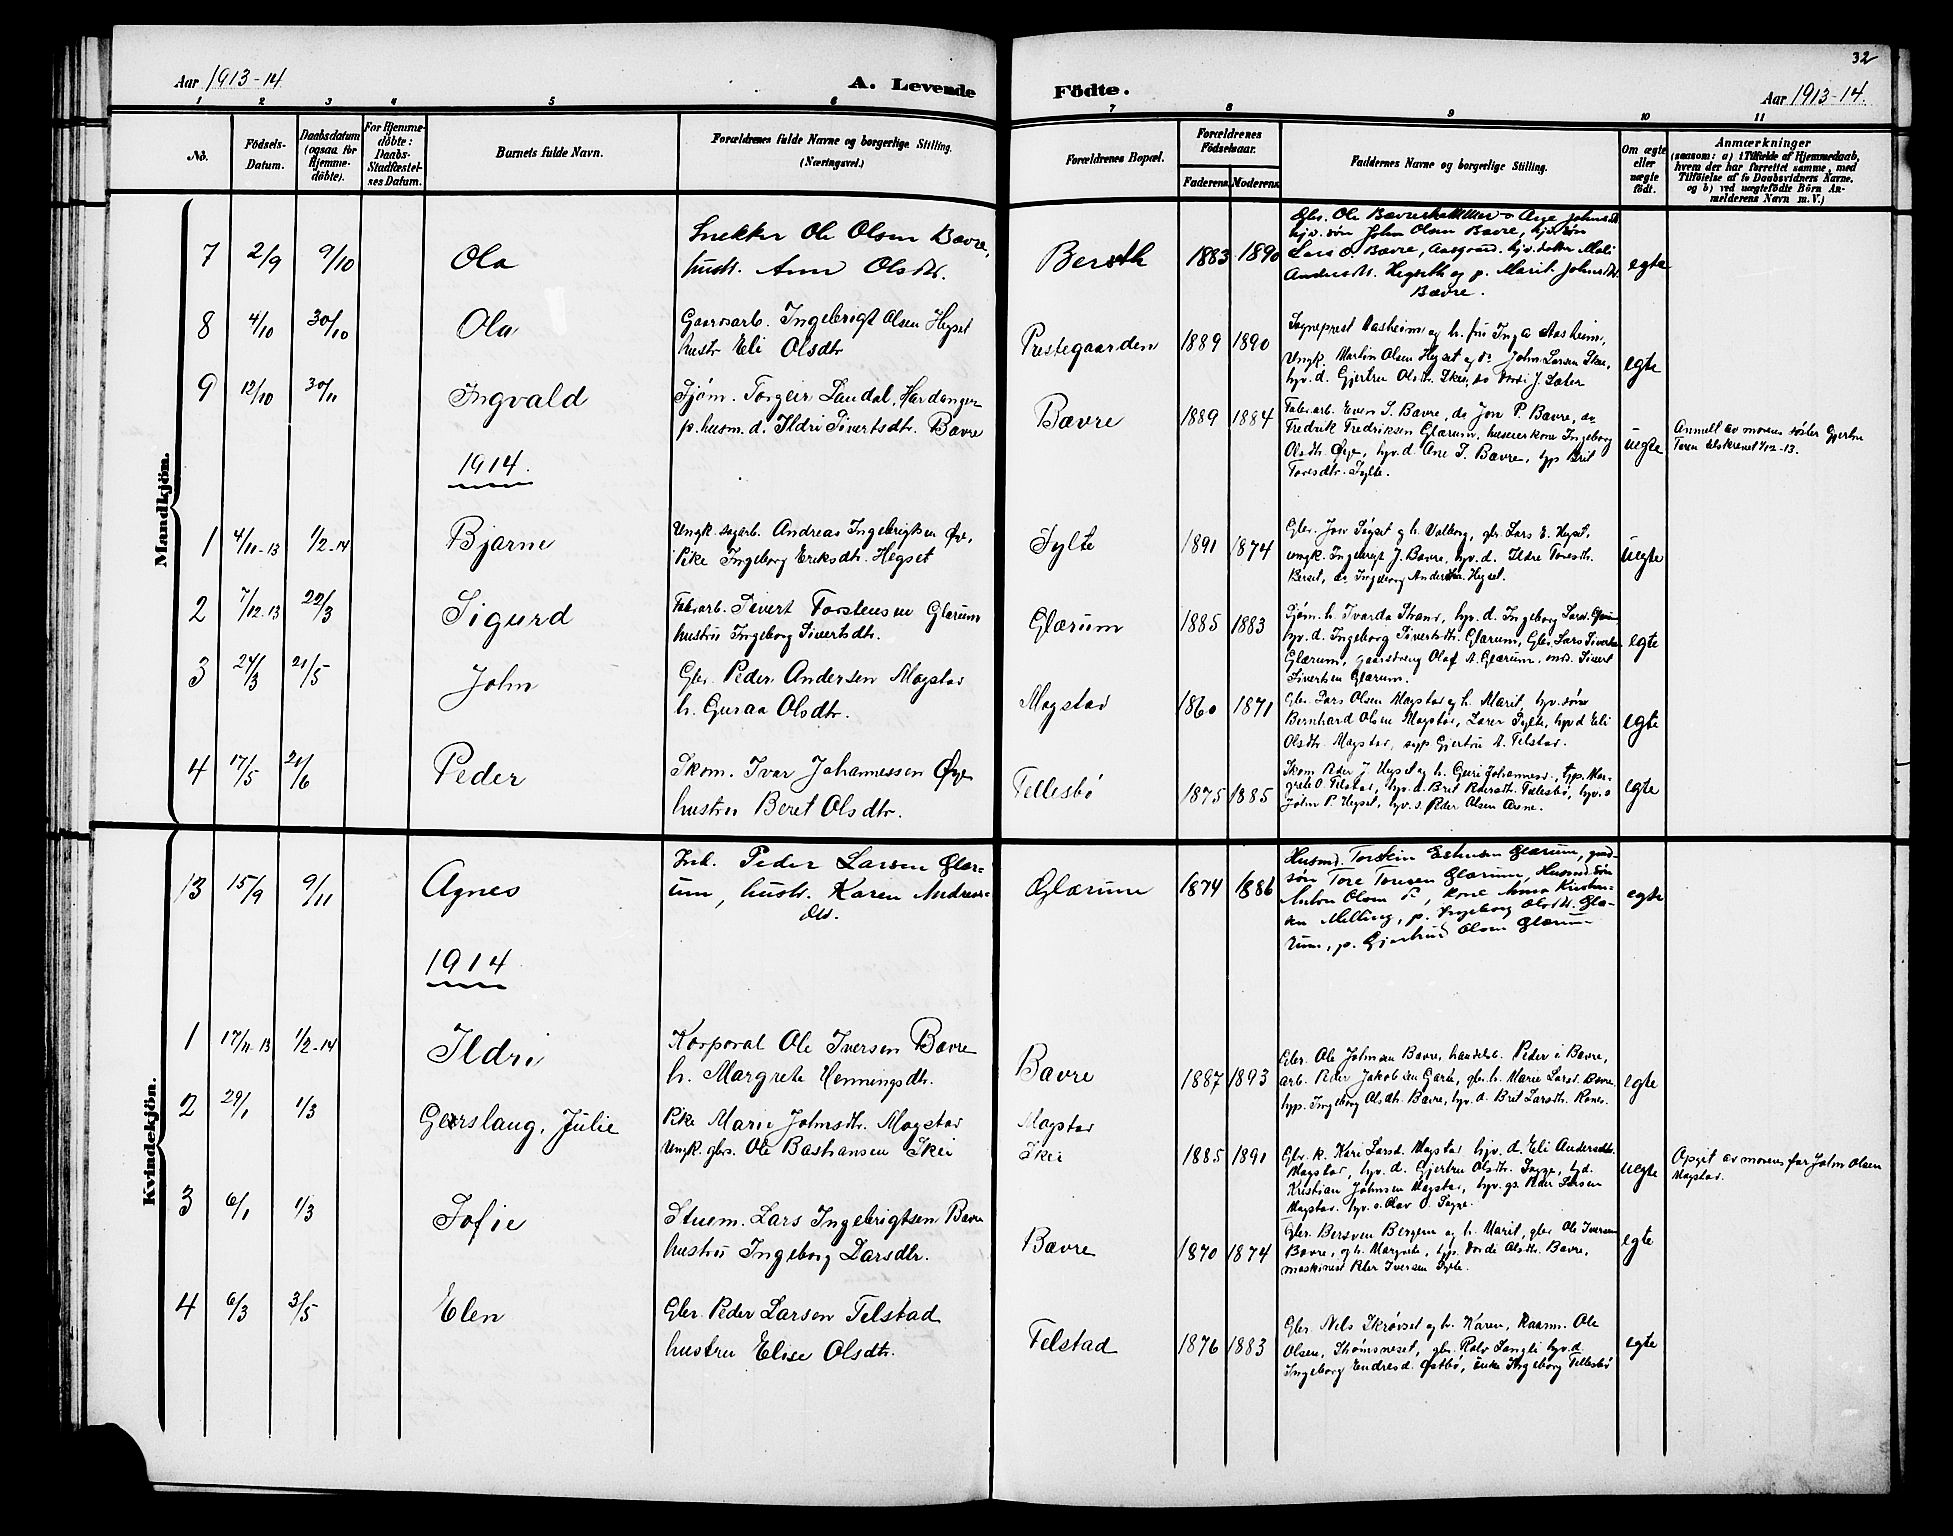 32
Aar 1913-14
A. Levende Födte.
Aar 1913-14.
1 2 3 4 5 6 7 8 9 10 11
No.
Födsels-Datum.
Daabsdatum (ogsaa for Hjemme-döbte).
For Hjemme-döbte: Daabs-Stadfæstel-ses Datum.
Barnets fulde Navn.
Forældrenes fulde Navne og borgerlige Stilling. (Næringsvei.)
Forældrenes Bopæl.
Forældrenes Födselsaar.
Faderens. Moderens.
Faddernes Navne og borgerlige Stilling.
Om ægte eller uægte födt.
Anmærkninger
(saasom: a) i Tilfælde af Hjemmedaab,
hvem der har forrettet samme, med
Tilföielse af to Daabsvidners Navne.
og b) ved uægtefödte Börn An-
melderens Navn m. V.)
Mandkjön.
7 2/9 9/10 Ola
Snekker Ole Olsen Bævre,
hustr. Ane Olsdtr.
1883 1890
Lars O. Bævre, Aasgaard, hjv. datter Mali
Andersdtr. Hegseth og p. Marit Johnsdtr.
Bævre.
egte
8 4/10 30/10 Ola
Gaardsarb. Ingebrigt Olsen Hegset
hustr Eli Olsdtr
Prestegaarden 1889 1890
Sogneprest Aasheim og h. fru Inga Aasheim,
Ungk. Martin Olsen Hegset og do John Larsen Skei,
egte
9 12/10 30/11 Ingvald
Sjøm. Torgeir Sandal, Hardanger
p. husm. d. Ildri Sivertsdtr. Bævre
Bævre 1889 1884
Fabr.arb. Even S. Bævre, do Jon P. Bævre, do
Fredrik Fredriksen Glærum, husererkone Ingeborg
Olsdtr. Øye, hv. d. Ane S. Bævre, typ Brit
Toresdtr. Sylte.
uegte
Anmelt av morens søster Gjertru
1914
1 4/11-13 1/2-14 Bjarne
Ungk. sagarb. Andreas Ingebrigtsen Øye,
Pike Ingeborg Eriksdtr. Hegset
Sylte 1891 1874
Gbr. Jon Søyset og h. Valborg, gbr. Lars E. Hegset,
ungk. Ingebrigt J. Bævre, hv. d. Ildri Toresdtr.
Berset, do Ingeborg Andersdtr. Hegset.
uegte
2 7/12-13 22/3 Sigurd
Fabrarb. Sivert Torstensen Glærum
hustru Ingeborg Sivertsdtr.
Glærum 1885 1883
Sjøm. h. Ivarda Strand, hv. d. Ingeborg Larsd. Glærum
hv. d. Ingeborg Sivertsdtr. Glærum, Gbr. Lars Sivertsen
Glærum, gaardsdreng Olaf A. Glærum, snd. Sivert
Sivertsen Glærum.
egte
3 24/3 21/5 John
Gbr. Peder Andersen Mogstad
h. Guraa Olsdtr.
Mogstad 1860 1871
Gbr. Lars Olsen Mogstad og h. Marit, hv. søn
Bernhard Olsen Mogstad, Lærer Sylte, hv. d. Eli
Olsdtr. Mogstad, syp Gjertru A. Telstad.
egte
4 17/5 21/6 Peder
Skom. Ivar Johannessen Øye
hustru Beret Olsdtr.
Tellesbø 1875 1885
Skom. Peder J. Hegset og h. Guri Johannesd., typ. Mar-
grete O. Telstad, hv. d. Brit Pedersdtr. Tellesbø, hv. s
John P. Hegset, hv. s. Peder Olsen Aasne.
egte
Kvindekjön.
13 15/9 9/11 Agnes
Ink. Peder Larsen Glær-
um, hustr. Karen Andreas-
dtr.
Glærum 1874 1886
Husmd. Torstein Estensen Glærum, grd-
søn Tore Toresen Glærum, Husmd. søn
sen Melling, p. Ingeborg Olsdtr. Glæ-
rum, p. Gjertrud Olsen Glærum
egte
1914
1 17/11-13 1/2-14 Ildri
Korporal Ole Iversen Bævre
h. Margrete Henningsdtr.
Bævre 1887 1893
Gbr. Ole Johnsen Bævre, handelsb. Peder i Bævre,
arb. Peder Jakobsen Garte, gbr. h. Marie Larsd. Bævre
hpp. Ingeborg Olsdtr. Bævre, hv. d. Brit Larsdtr. Rones.
egte
2 29/1 1/3 Geirslaug, Julie
Pike Marie Johnsdtr. Mogstad
Ungk. gbrs. Ole Bashansen Skei
Mogstad
Skei 1885 1891
Gbr. k. Kari Larsd. Mogstad hv. d. Eli Andersdtr.
Kristian Johnsen Mogstad, hv. gs. Peder Larsen
uegte
Opgit av moren far John Olsen
Mogstad.
3 6/1 1/3 Sofie
Stuem. Lars Ingebrigtsen Bævre
hustru Ingeborg Larsdtr.
Bævre 1870 1874
Gbr. Bersven Bergem og h. Marit, gbr. Ole Iversen
Bævre, og h. Margrete, hp. Dordi Olsdtr. Bævre,
maskinist Peder Iversen Sylte.
egte
4 6/3 3/5 Elen
Gbr. Peder Larsen Telstad
hustru Elise Olsdtr.
Telstad 1876 1883
Gbr. Nels Skrøvset og h. Karen, Kaarm. Ole
Olsen, Strømsneset, gbr. Rolv Sangli hv. d.
Ingeborg Endresd. Østbø, enke Ingeborg Tellesbø
egte